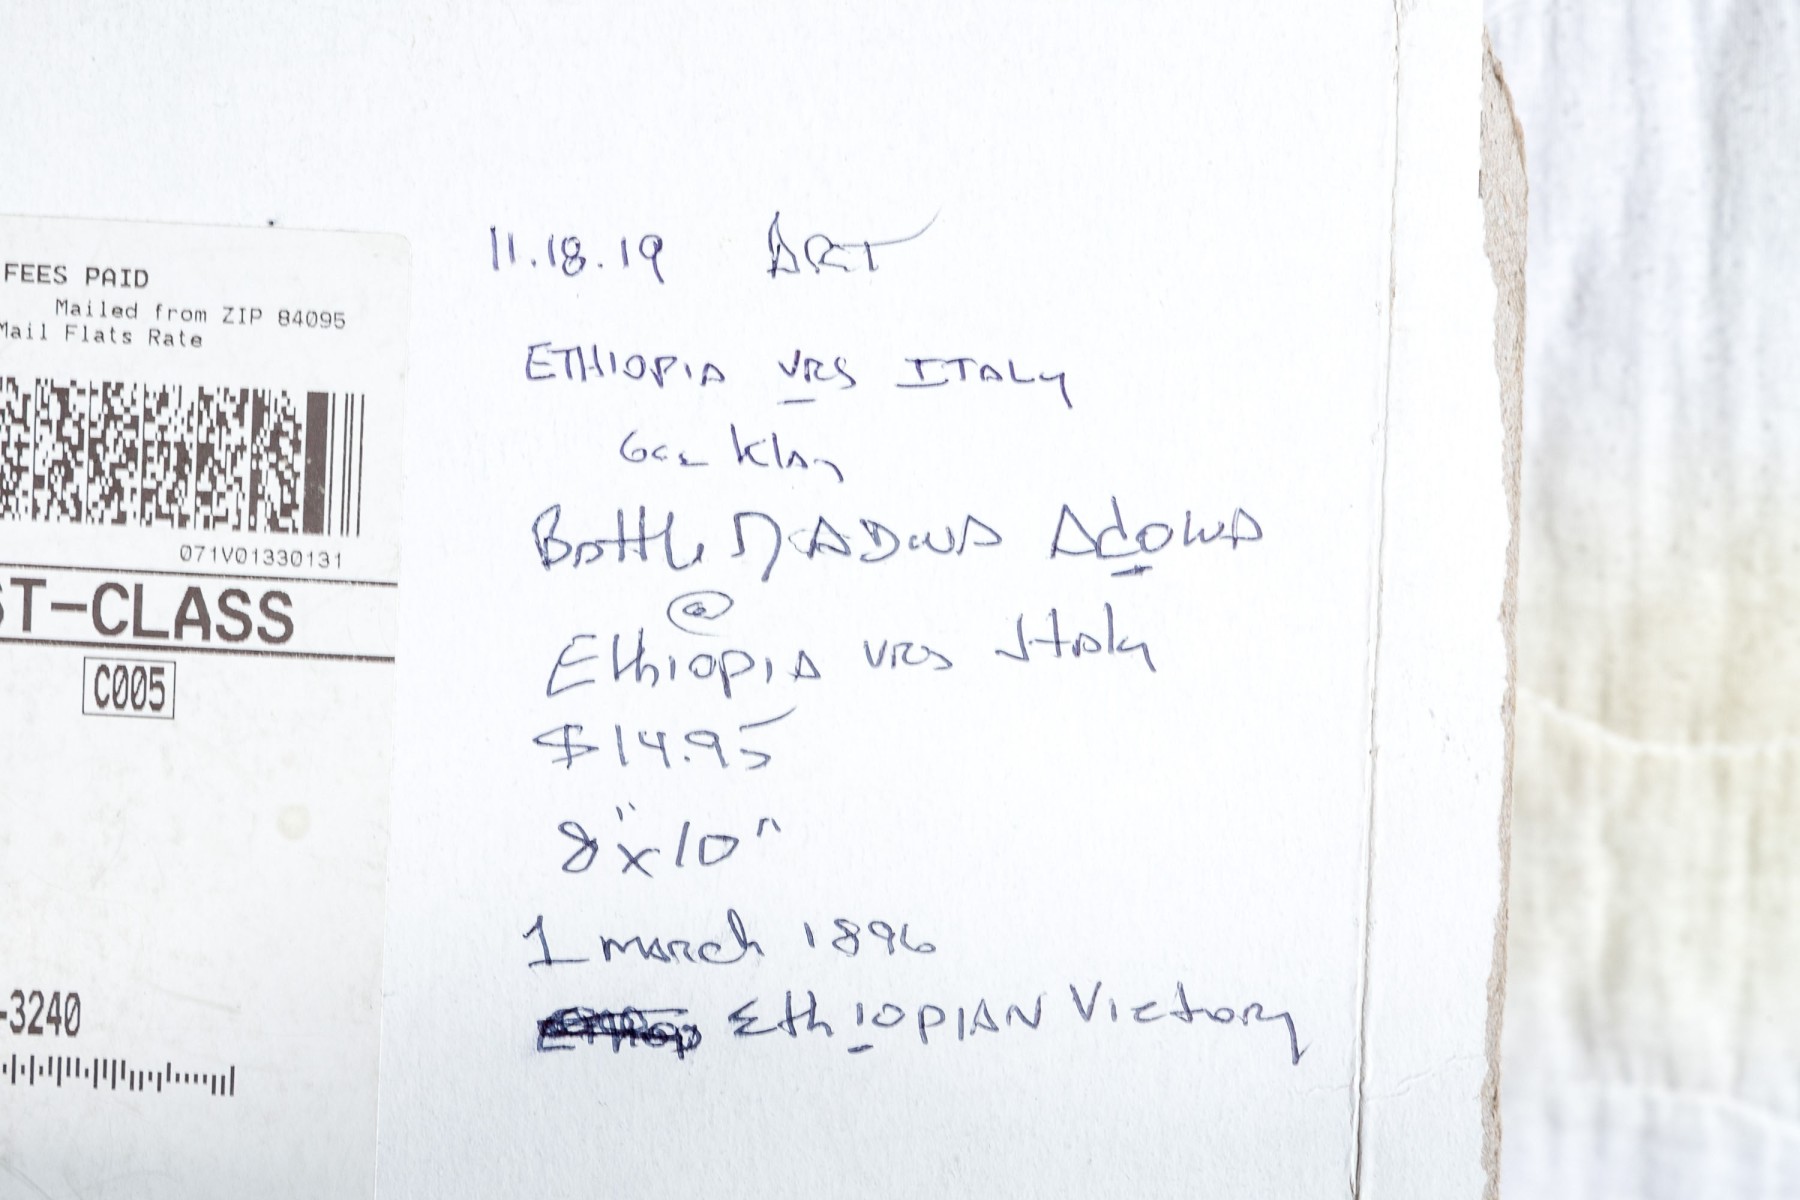 FEES PAID
Mailed from ZIP 84095
Mail Flats Rate
071V01330131
ST-CLASS
C005
-3240
11.18.19 ART
ETHIOPIA VRS ITALY
Battle Adowa
@
Ethiopia vrs Italy
$14.95
8"x10"
1 march 1896
EthiOPIAN Victory